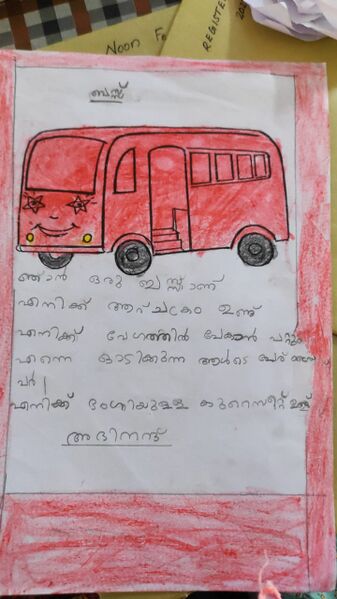 Noon Fo
REGISTE
ബസ്സ്
ഞാൻ ഒരു ബസ്സാണ്
എനിക്ക് ആറ് ചക്രം ഉണ്ട്
എനിക്ക് വേഗത്തിൽ പോകാൻ പറ്റും
എന്നെ ഓടിക്കുന്ന ആൾടെ പേര്
എനിക്ക് ഭംഗിയുള്ള കുറെ സീറ്റ് ഉണ്ട്
അഭിനന്ദ്